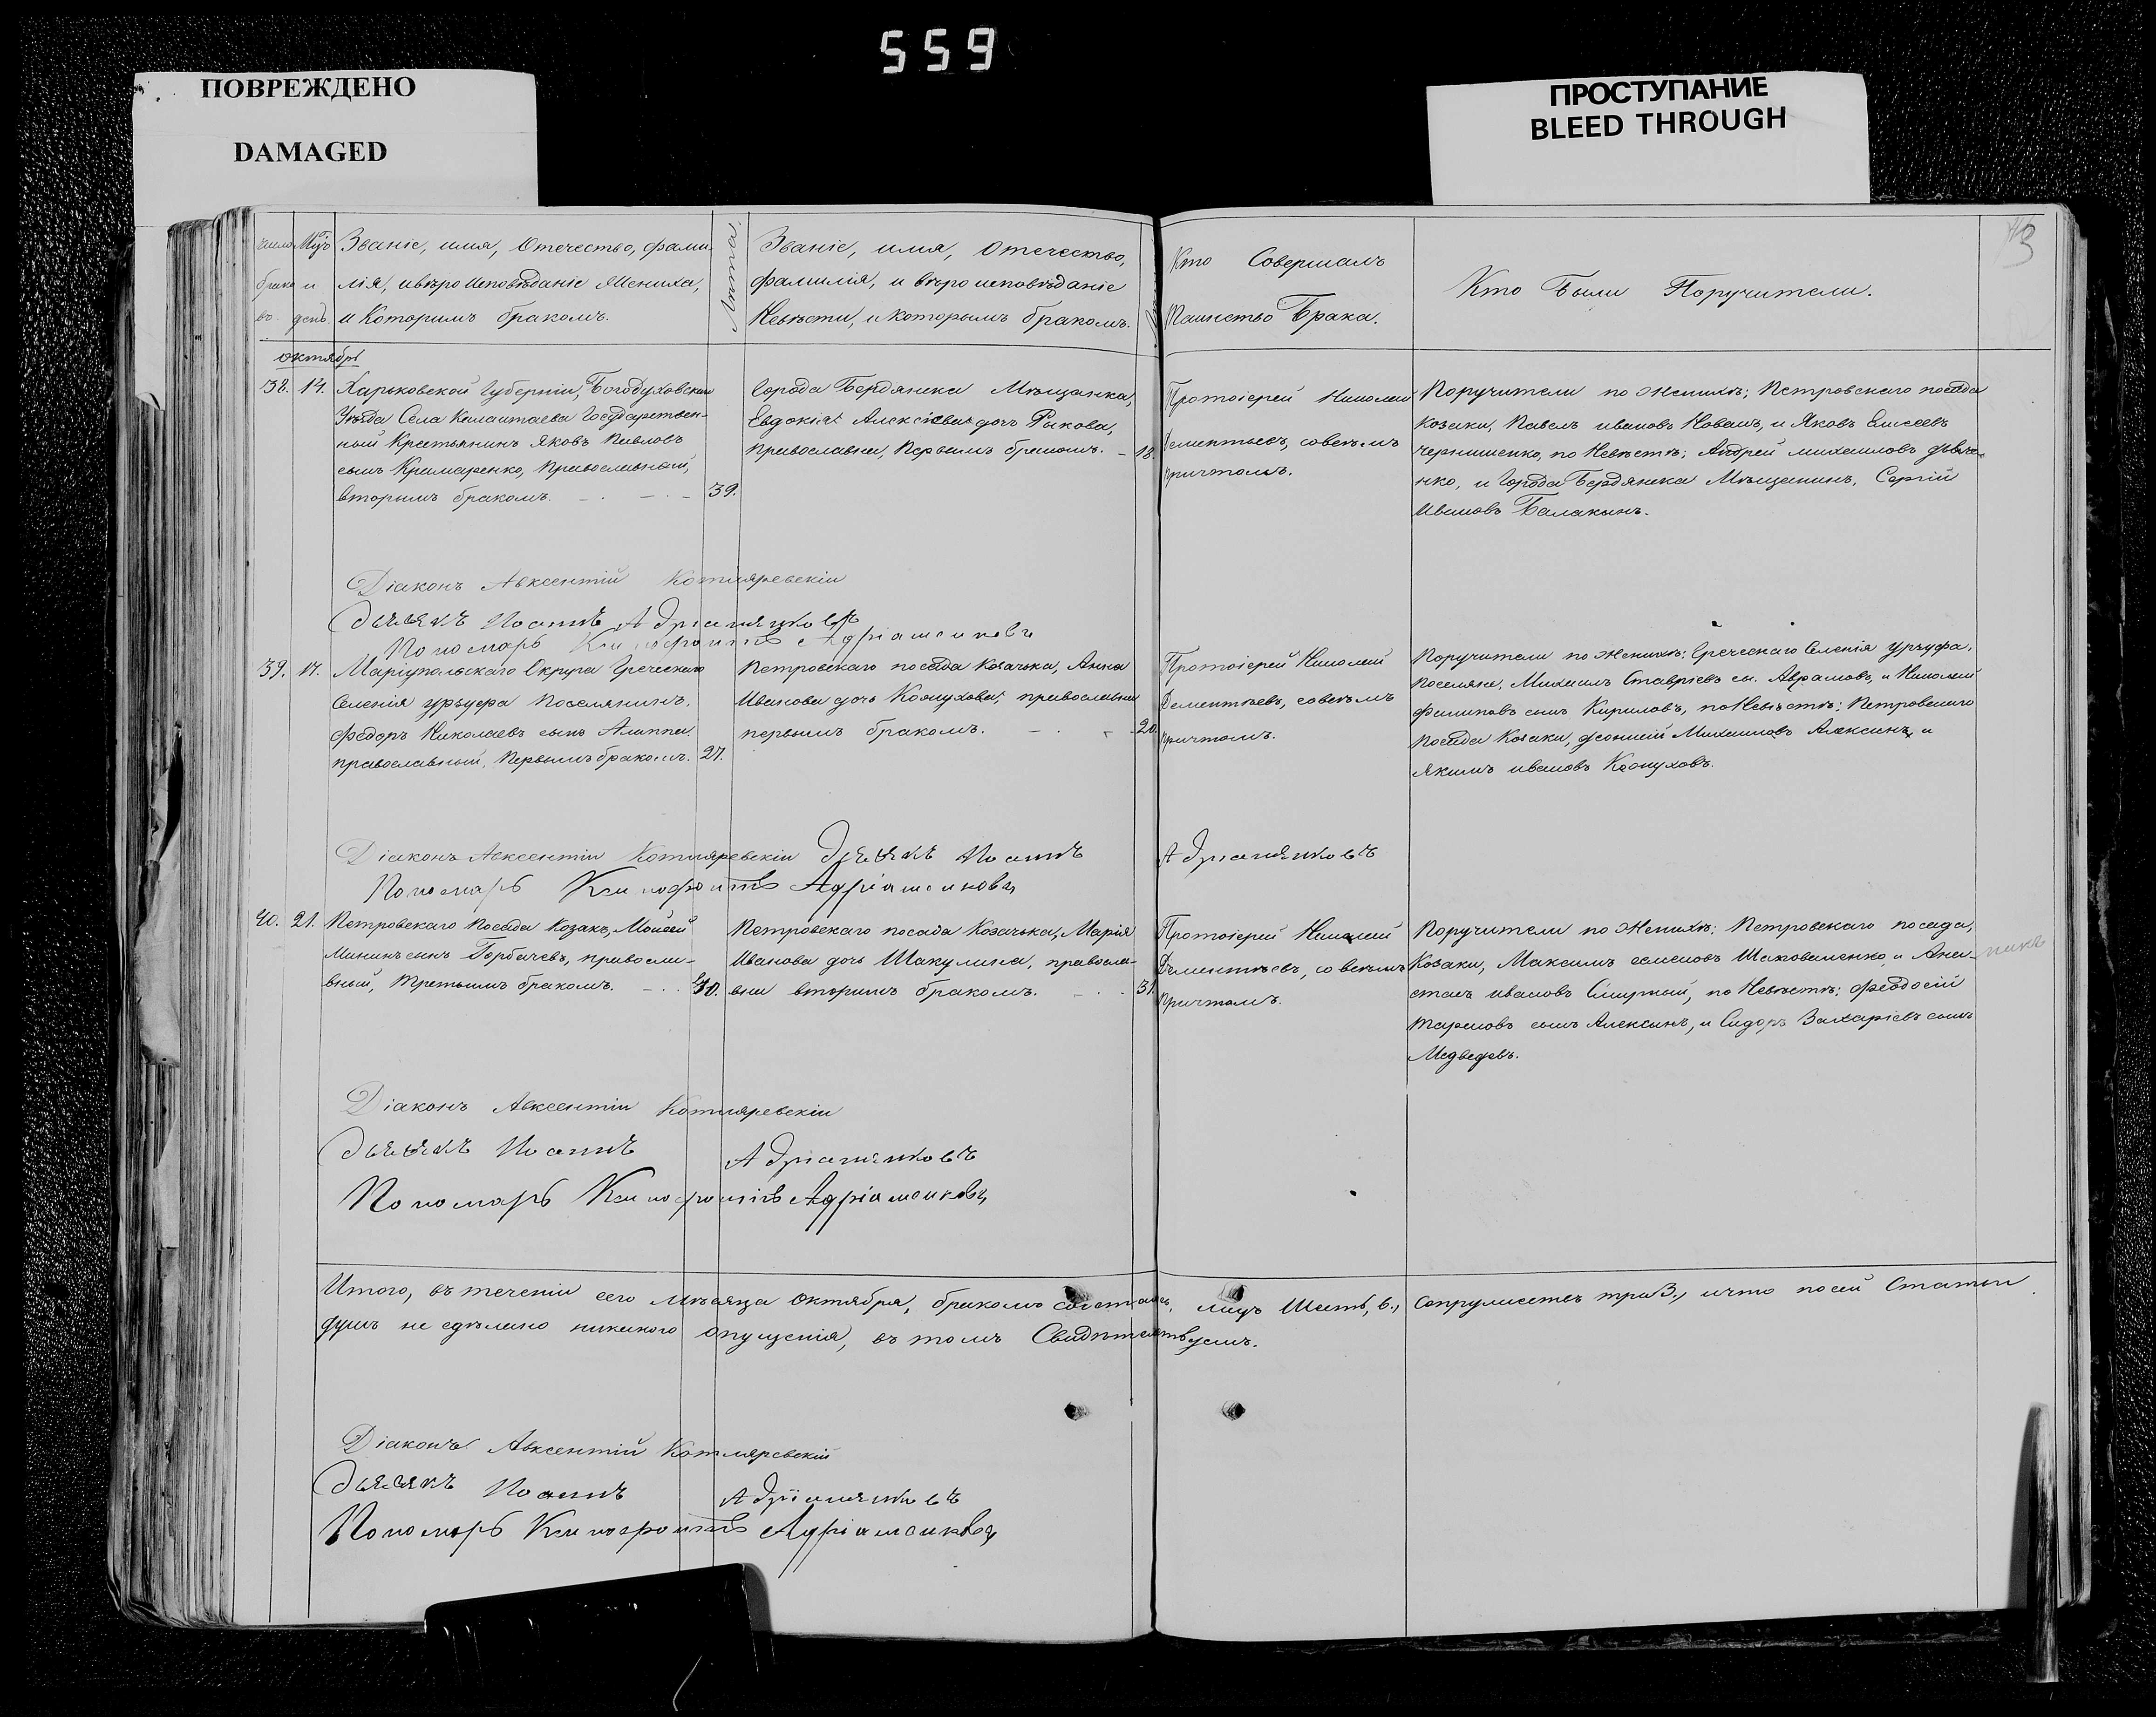 559
ПОВРЕЖДЕНО
DAMAGED
ПРОСТУПАНИЕ
BLEED THROUGH
3
число
брако
въ
Мцъ
и
день.
Званіе, имя, Отечество, фами-
лія, и вѣро исповѣданіе Жениха,
и Которимъ бракомъ.
Лѣта.
Званіе, имя, Отечество,
фамилія, и вѣро исповѣданіе
Невѣсти, и которымъ бракомъ.
Кто Совершалъ
Таинство Брака.
Кто Были Поручители.
октябрь
38. 14. Харьковской Губерніи, Богодуховскаго
Уѣзда Села Государствен-
ный Крестьянинъ Яковъ Павловъ
сынъ Крамаренко, Православный,
вторымъ бракомъ. 39.
Города Бердянска Мѣщанка,
Евдокія Алексіева дочь Рыкова,
православна, Первымъ бракомъ. 18
Протоіерей Николай
Дементьевъ, со всѣмъ
причтомъ.
Поручители по Женихѣ; Петровскаго посада
Козаки, Павелъ Ивановъ Ковань, и Яковъ Елисеевъ
Чернишенко, по Невѣстѣ; Андрей Михаиловъ
нко, и Города Бердянска Мѣщанинъ, Сергій
Ивановъ Балакинъ.
Діаконъ Авксентій Котляревскій
Дьячекъ Иоаннъ Адріановъ
Пономарь Ксенофонтъ Адріаненковъ
39. 17. Маріупольскаго Округа Греческаго
Селенія Урзуфа Поселянинъ,
Федоръ Николаевъ сынъ Алаппа
православный, Первымъ бракомъ. 27.
Петровскаго посада Козачька, Анна
Иванова дочь Кожухова, православна
первымъ бракомъ. 20.
Протоіерей Николай
Дементьевъ, со всѣмъ
причтомъ.
Поручители по Женихѣ: Греческаго Селенія Урзуфа,
Поселяне, Михаилъ Ставріевъ сы. Аврамовъ, и Николай
Филиповъ сынъ Кириловъ, по Невѣстѣ: Петровскаго
Посада Козаки, Михаиловъ Алексинъ, и
Якимъ Ивановъ Кожуховъ.
Діаконъ Авксентій Котляревскій Дьячекъ Иоаннъ Адріаненковъ
Пономарь Ксенофонтъ Адріаненковъ
40. 21. Петровскаго Посада Козакъ, Моисей
Мининъ сынъ Горбачевъ, правосла-
вный, Третьимъ бракомъ. 40.
Петровскаго посада Козачька, Марія
Иванова дочь Шакулина, правосла-
вна вторымъ бракомъ. 31.
Протоіерей Николай
Дементьевъ, со всѣмъ
Причтомъ.
Поручители по Женихѣ: Петровскаго посада,
Козаки, Максимъ Семеновъ Шаповаленко, и Ана-
стасъ Ивановъ Смирный, по Невѣстѣ: Феодосій
Тарасовъ сынъ Алексинъ, и Сидоръ Захаріевъ сынъ
Медведевъ.
Діаконъ Авксентій Котляревскій
Дьячекъ Иоаннъ Адріаненковъ
Пономарь Ксенофонтъ Адріаненковъ
Итого, въ теченіи сего мѣсяца Октября, бракомъ сочетались лицъ Шесть, 6., Сопружествъ три 3., и что по сей Статьи
душъ не сдѣлано никакого опущенія, въ томъ Свидѣтельствуемъ.
Діаконъ Авксентій Котляревскій
Дьячекъ Иоаннъ Адріаненковъ
Пономарь Ксенофонтъ Адріаненковъ